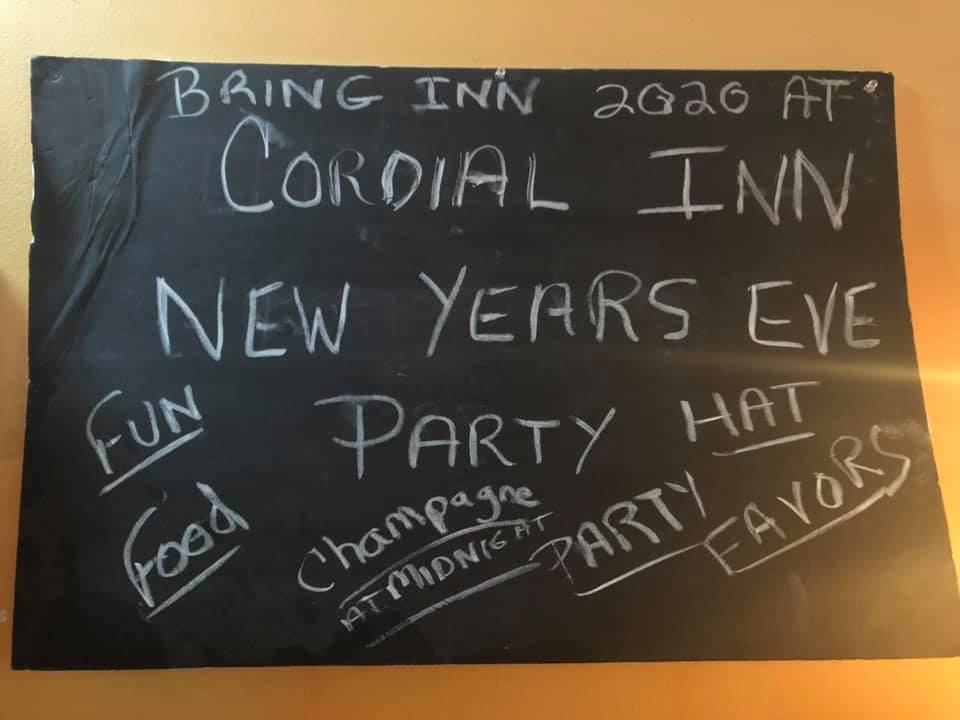 BRING INN 2020 AT
CORDIAL INN
NEW YEARS EVE
FUN
PARTY
HAT
Food
Champagne
AT MIDNIGHT
PARTY
FAVORS